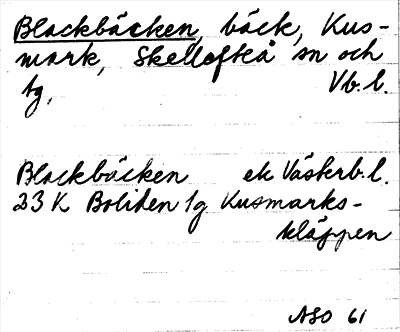 Blackbäcken, bäck, Kus-
mark, Skellefteå sn och
tg, Vb.l.
Blackbäcken ek Västerb.l.
23 K Boliden tg Kusmarks-
kläppen
ASO 61